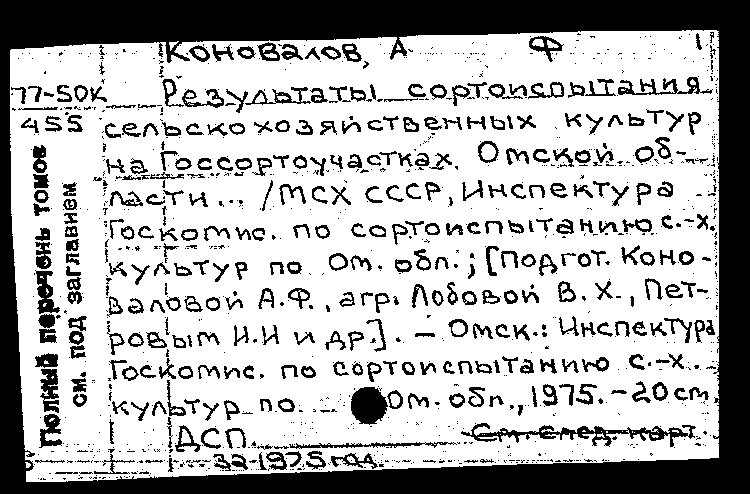 Коновалов, А Ф 1
77-50к Результаты сортоиспытания
455 сельскохозяйственных культур
на Госсортоучастках. Омской об-
ласти... /МСХ СССР, Инспектура
Госкомис. по сортоиспытанию с.-х.
культур по Ом. обл.; [Подгот. Коно-
валовой А.Ф., агр. Лобовой В.Х., Пет-
ровым И.И и др.]. – Омск.: Инспектура
Госкомис. по сортоиспытанию с.-х.
культур по Ом. обл., 1975. – 20 см.
ДСП. См. след. карт.
32-1975 год.
Полный перечень томов
см. под заглавием